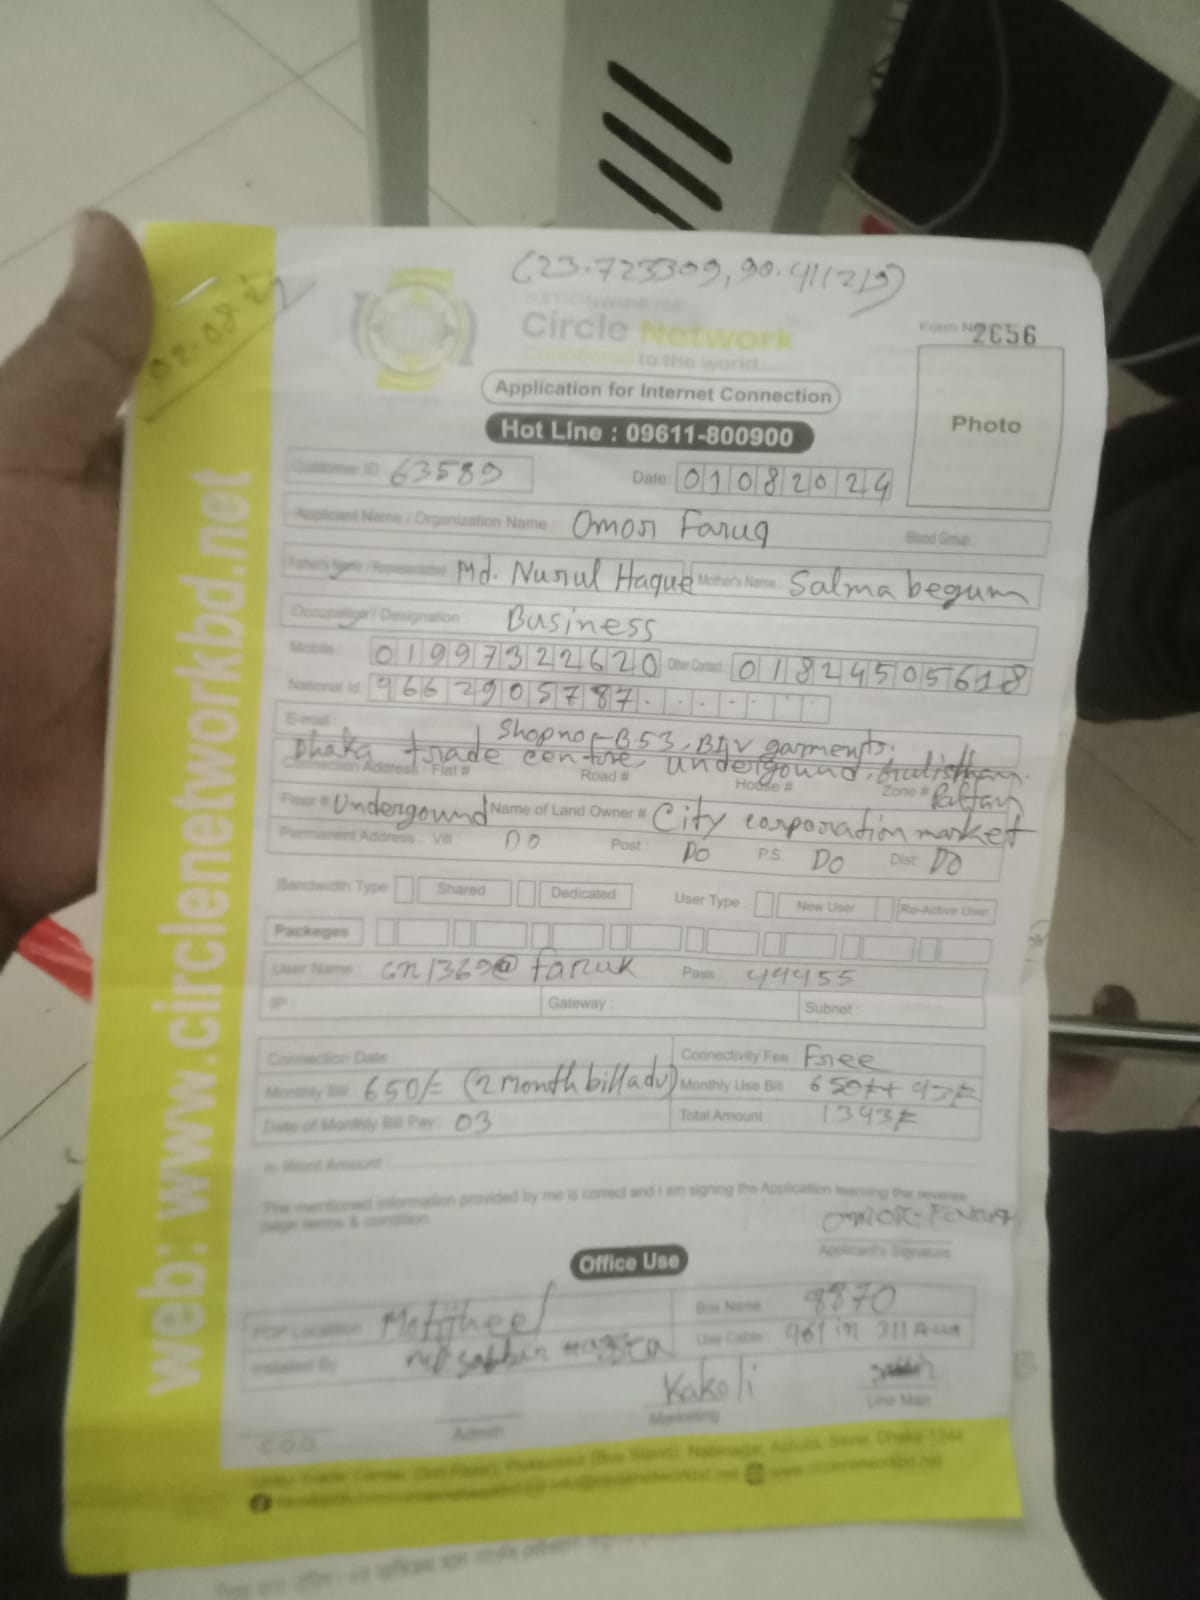 (23.723309, 90.411219)
02.08.24
NATIONWIDE ISP
Circle Network
Connected to the world...
Form No 2656
Application for Internet Connection
Photo
Hot Line : 09611-800900
Customer ID 63589 Date: 01082024
Applicant Name / Organization Name : Omor Faruq Blood Group :
Father's Name / Representative Md. Nurul Haque Mother's Name : Salma begum
Occupation / Designation : Business
Mobile : 01997322620 Other Contact : 01824505618
National Id : 9662905787
E-mail Shop no-B53, garments.
Dhaka trade centre, undergound, Gulisthan.
Connection Address : Flat # Road # House # Zone # Paltan
Floor # Undergound Name of Land Owner # City corporation market
Permanent Address : Vill : DO Post : DO P.S. DO Dist: DO
Bandwidth Type Shared Dedicated User Type : New User Re-Active User
Packeges
User Name : cn1369@faruk Pass : 44455
IP : Gateway : Subnet :
Connection Date : Connectivity Fee Free
Monthly Bill 650/= (2 month bill adv) Monthly Use Bill :
Date of Monthly Bill Pay : 03 Total Amount 1343/=
In Word Amount
The mentioned information provided by me is correct and I am signing the Application learning the reverse
page terms & condition.
Applicant's Signature
Office Use
POP Location Motijheel Box Name 8870
Installed By Use Cable
Kakoli
C.O.O Admin Marketing Line Man
web: www.circlenetworkbd.net